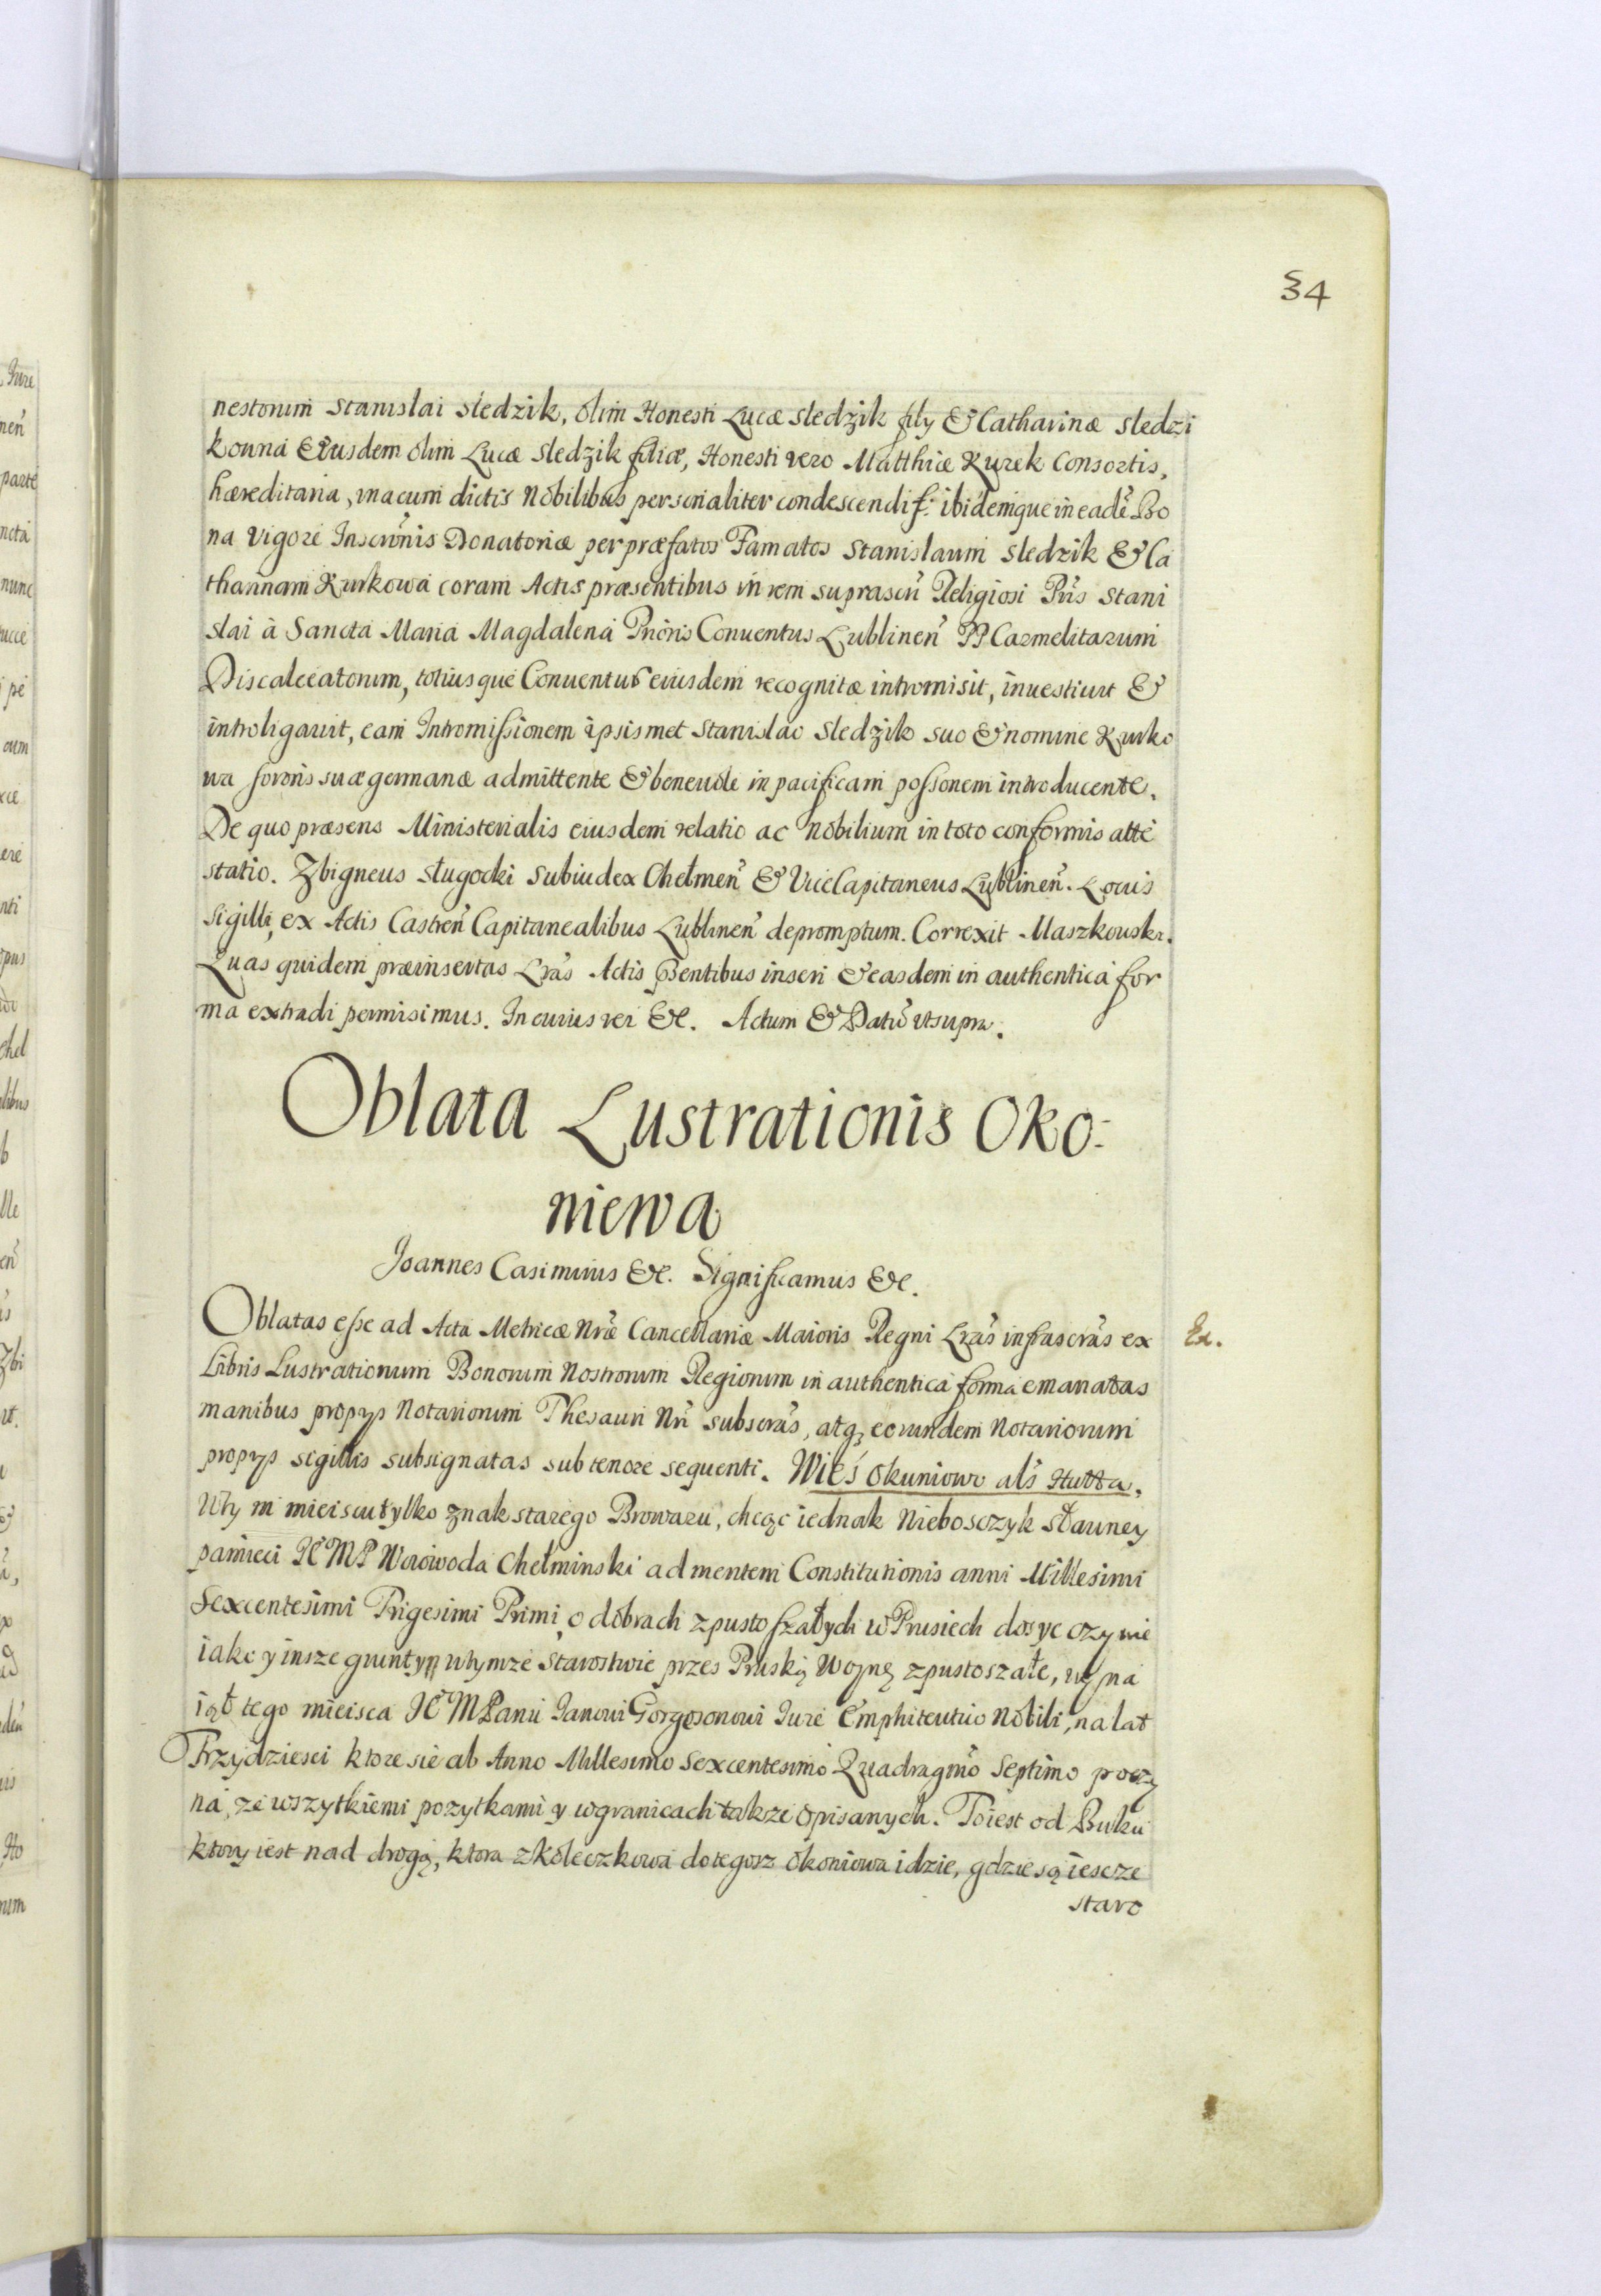 34
nestorum Stanislai Sledzik, olim Honesti Lucæ Sledzik filÿ & Catharinæ Sledzi
kowna Eiusdem olim Lucæ Sledzik filiæ, Honesti vero Matthiæ Kurek Consortis,
hæreditaria, una cum dictis Nobilibus personaliter condescendiss: ibidemque in eadē Bo
na vigore Inscrip̃nis Donatoriæ per præfatos Famatos Stanislaum Sledzik & Ca
tharinam Kurkowa coram Actis præsentibus in rem suprascr̃ Religiosi Pr̃is Stani
slai à Sancta Maria Magdalena Prioris Conuentus Lublineñ PP Carmelitarum
Discalceatorum, totiusque Conuentus eiusdem recognitæ intromisit, inuestiuit &
introligauit, eam Intromissionem ipsismet Stanislao Sledzik suo & nomine Kurko
wa sororis suæ germanæ admittente & beneuole in pacificam possonem introducente.
De quo præsens Ministerialis eiusdem relatio ac Nobilium in toto conformis atte
statio. Zbigneus Sługocki Subiudex Chełmeñ & ViceCapitaneus Lublineñ. Locus
Sigilli, ex Actis Castreñ Capitanealibus Lublineñ depromptum. Correxit Maszkouski.
Quas quidem præinsertas Lr̃as Actis p̃sentibus inseri & easdem in authentica for
ma extradi permisimus. In cuius rei &c. Actum & Datũ vt supra.
Oblata Lustrationis Oko:
niewa
Joannes Casimirus &c. Significamus &c.
Oblatas esse ad Acta Metricæ Nr̃æ Cancellariæ Maioris Regni Lr̃as infrascr̃as ex
Ex.
Libris Lustrationum Bonorum Nostrorum Regiorum in authentica forma emanatas
manibus proprÿs Notariorum Thesauri Nr̃i subscr̃as, atq3 eorundem Notariorum
proprÿs sigillis subsignatas sub tenore sequenti. Wieś Okuniowo al's Hutta.
Wty m mieiscu tylko znak starego Browaru, chcąc iednak Nieboszczyk sławney
pamieci JE° M P Woiewoda Chełminski ad mentem Constitutionis anni Millesimi
Sexcentesimi Trigesimi Primi, o dobrach zpustoszałych w Prusiech dosyc czynie
iako y insze grunty wtymze Starostwie przes Pruską Woynę zpustoszałe, wy na
iął tego mieisca JE° M Panu Janowi Gorgosonowi Jure Emphiteutico Nobili, na lat
Trzydziesci ktore sie ab Anno Millesimo Sexcentesimo Quadragm̃o Septimo poczy
na, ze wszytkiemi pozytkami y w granicach takze opisanych. To iest od Buku
ktory iest nad drogą, ktora z kołeczkowa do tegosz okoniowa idzie, gdzie są iescze
staro